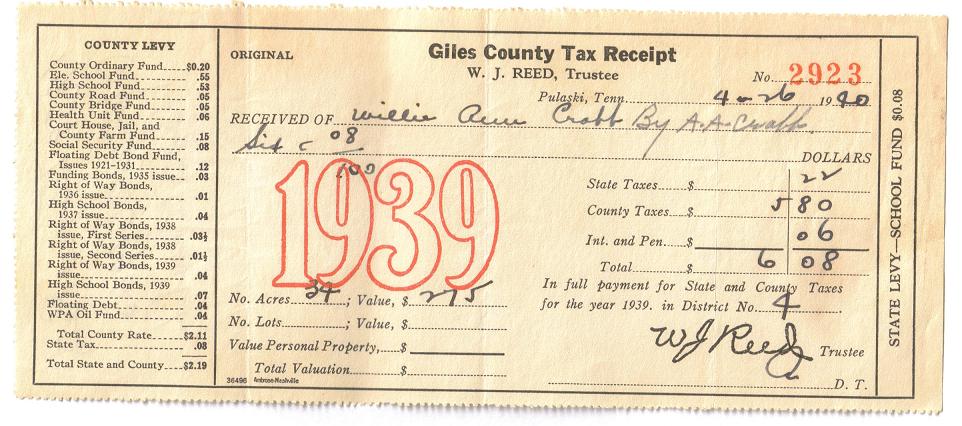 COUNTY LEVY
County Ordinary Fund $0.20
Ele. School Fund .55
High School Fund .53
County Road Fund .05
County Bridge Fund .05
Health Unit Fund .06
Court House, Jail, and
County Farm Fund .15
Social Security Fund .08
Floating Debt Bond Fund,
Issues 1921-1931 .12
Funding Bonds, 1935 issue .03
Right of Way Bonds,
1936 issue .01
High School Bonds,
1937 issue .04
Right of Way Bonds, 1938
issue, First Series .03½
Right of Way Bonds, 1938
issue, Second Series .01½
Right of Way Bonds, 1939
issue .04
High School Bonds, 1939
issue .07
Floating Debt .04
WPA Oil Fund .04
Total County Rate $2.11
State Tax .08
Total State and County $2.19
ORIGINAL
Giles County Tax Receipt
W. J. REED, Trustee
No. 2923
Pulaski, Tenn. 4-26 1940
RECEIVED OF Willie Ann Crabb By A.A. Crabb
Six & 08/100 DOLLARS
1939
State Taxes $ 22
County Taxes $ 5 80
Int. and Pen. $ 06
Total $ 6 08
In full payment for State and County Taxes
for the year 1939. in District No. 4
No. Acres 34; Value, $ 275
No. Lots ; Value, $
Value Personal Property, $
Total Valuation $
WJ Reed Trustee
D. T.
36496 Ambrose-Nashville
STATE LEVY—SCHOOL FUND $0.08